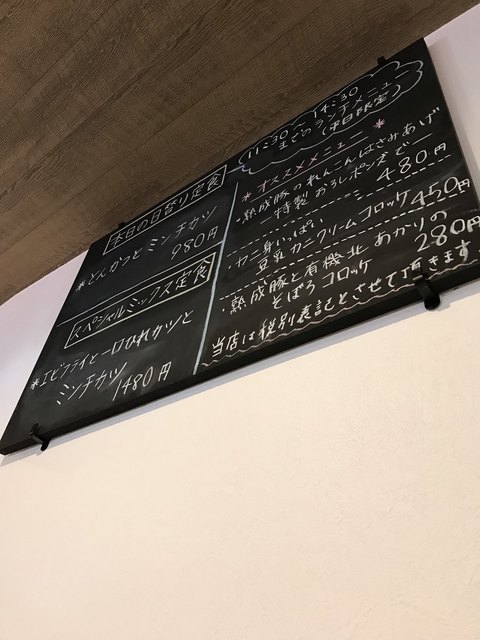 本日の日替り定食
*とんかつとミンチカツ
980円
スペシャルミックス定食
*エビフライと一口ひれカツと
ミンチカツ
1480円
11:30〜14:30
までのランチメニュー
(平日限定)
*オススメメニュー*
・熟成豚のれんこんはさみあげ
特製おろしポンズで
480円
・カニ身いっぱい
豆乳カニクリームコロッケ 450円
・熟成豚と有機北あかりの
そぼろコロッケ 280円
当店は税別表記とさせて頂きます